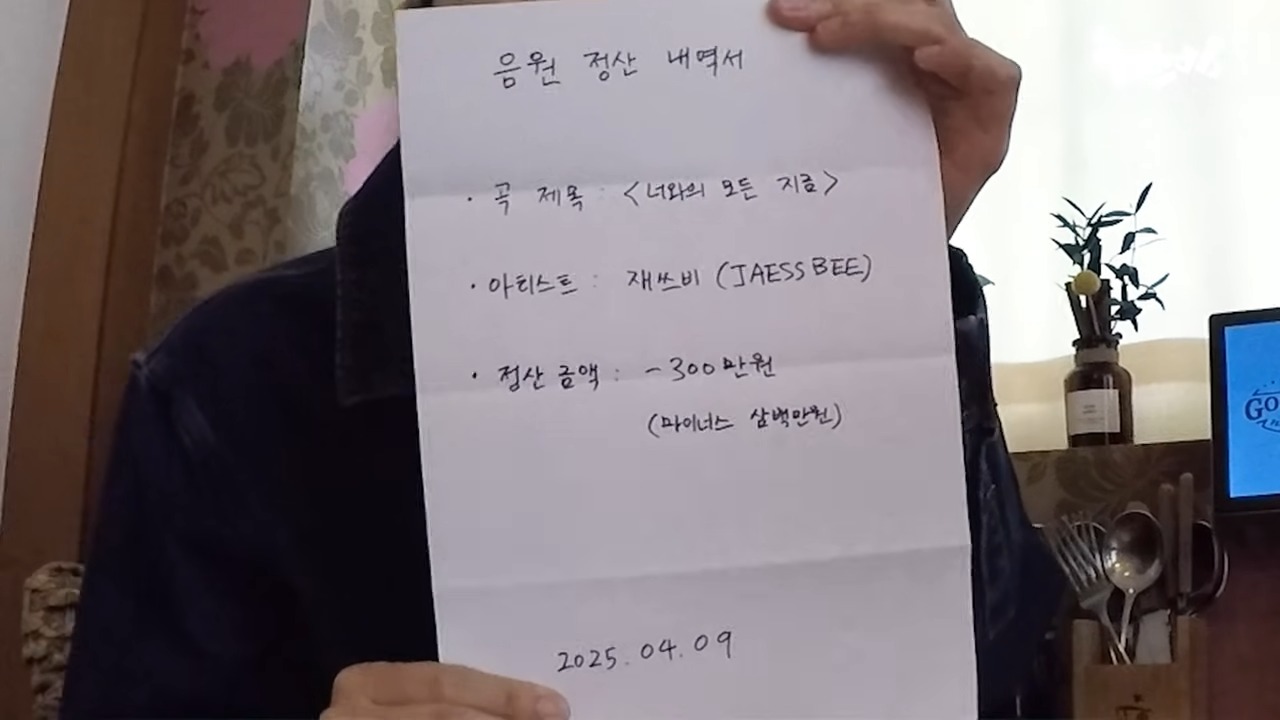 음원 정산 내역서
· 곡 제목 : <너와의 모든 지금>
· 아티스트 : 재쓰비 (JAESSBEE)
· 정산 금액 : -300만원
(마이너스 삼백만원)
2025.04.09
GO